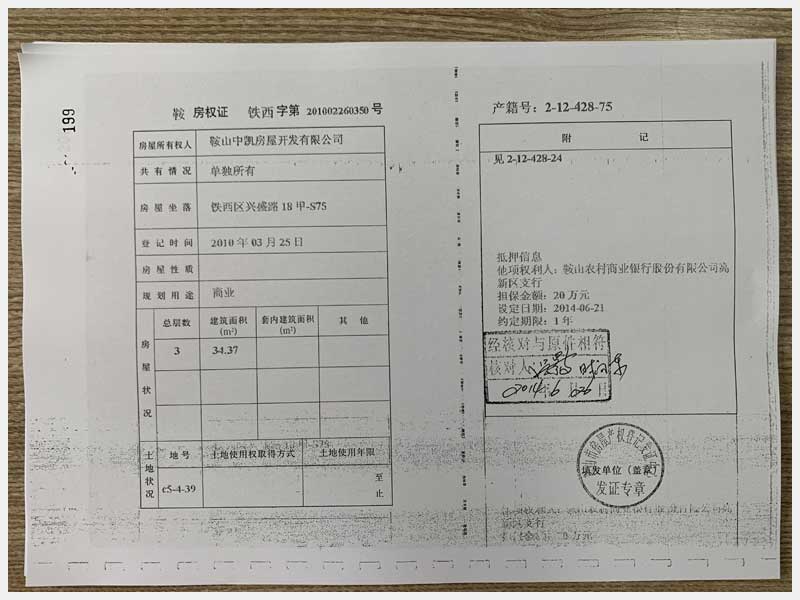 199
鞍 房权证 铁西 字第 201002260350 号
房屋所有权人 鞍山中凯房屋开发有限公司
共有情况 单独所有
房屋坐落 铁西区兴盛路 18 甲-S75
登记时间 2010 年 03 月 25 日
房屋性质
规划用途 商业
房屋状况
总层数 建筑面积(m²) 套内建筑面积(m²) 其他
3 34.37
土地状况
地号 土地使用权取得方式 土地使用年限
c5-4-39 至 止
产籍号：2-12-428-75
附 记
见 2-12-428-24
抵押信息
他项权利人：鞍山农村商业银行股份有限公司高
新区支行
担保金额：20 万元
设定日期：2014-06-21
约定期限：1 年
经核对与原件相符
核对人
2014 年 6 月 26 日
市房屋产权登记发证
填发单位（盖章）
发证专章
新区支行